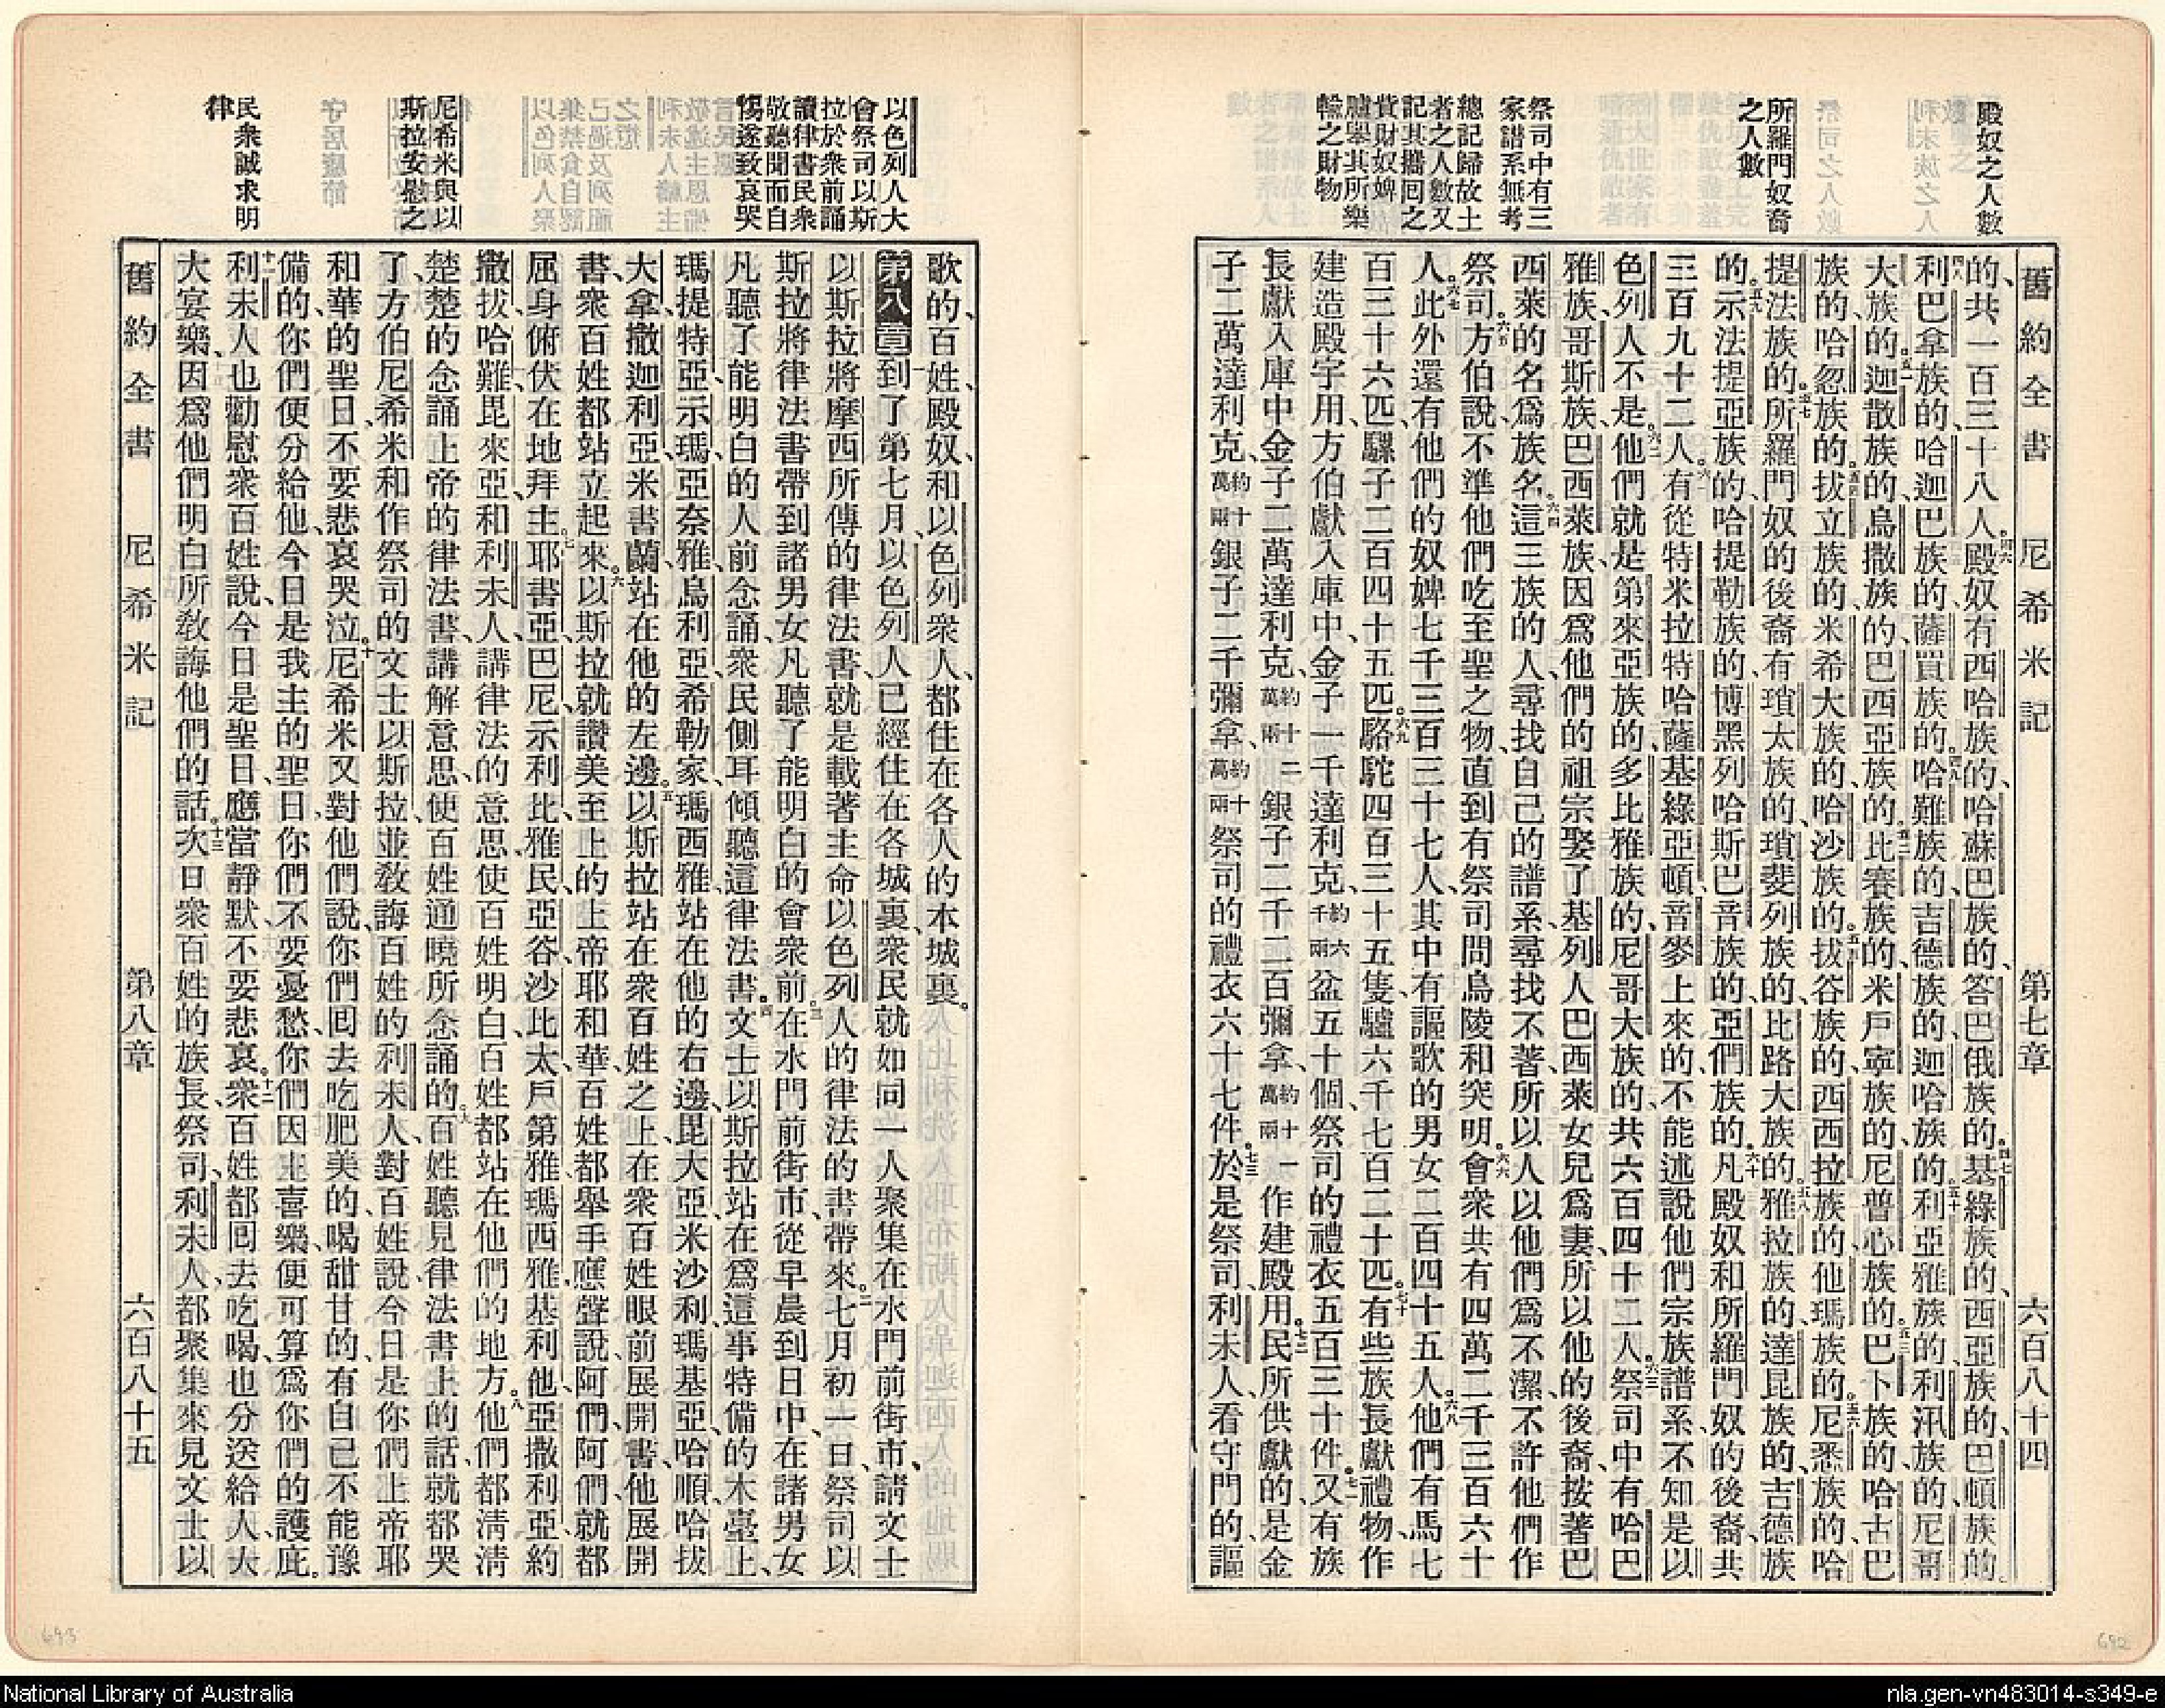 殿奴之人數
所羅門奴裔
之人數
祭司中有三
家譜系無考
總記歸故土
者之人數又
記其攜囘之
貲財奴婢
驢舉其所樂
輸之財物
舊約全書 尼希米記 第七章 六百八十四
的、共一百三十八人。四六殿奴有西哈族的、哈蘇巴族的、答巴俄族的、四七基綠族的、西亞族的、巴頓族的、
四八利巴拿族的、哈迦巴族的、薩買族的、四九哈難族的、吉德族的、迦哈族的、五十利亞雅族的、利汛族的、尼哥
大族的、五一迦散族的、烏撒族的、巴西亞族的、五二比賽族的、米戶寧族的、尼普心族的、五三巴卜族的、哈古巴
族的、哈忽族的、五四拔立族的、米希大族的、哈沙族的、五五拔谷族的、西西拉族的、他瑪族的、五六尼悉族的、哈
提法族的。五七所羅門奴的後裔、有瑣太族的、瑣斐列族的、比路大族的、五八雅拉族的、達昆族的、吉德族
的、五九示法提亞族的、哈提勒族的、博黑列哈斯巴音族的、亞們族的。六十凡殿奴和所羅門奴的後裔、共
三百九十二人。六一有從特米拉、特哈薩、基綠、亞頓、音麥上來的、不能述說他們宗族譜系、不知是以
色列人不是。六二他們就是第來亞族的、多比雅族的、尼哥大族的、共六百四十二人。六三祭司中有哈巴
雅族、哥斯族、巴西萊族、因爲他們的祖宗娶了基列人巴西萊女兒爲妻、所以他的後裔、按著巴
西萊的名爲族名。六四這三族的人、尋找自己的譜系、尋找不著、所以人以他們爲不潔、不許他們作
祭司。六五方伯說、不準他們吃至聖之物、直到有祭司問烏陵和突明。六六會衆共有四萬二千三百六十
人。六七此外還有他們的奴婢七千三百三十七人、其中有謳歌的男女二百四十五人。六八他們有馬七
百三十六匹、騾子二百四十五匹、六九駱駝四百三十五隻、驢六千七百二十匹。七十有些族長獻禮物、作
建造殿宇用、方伯獻入庫中、金子一千達利克、約六千兩盆五十個、祭司的禮衣五百三十件。七一又有族
長獻入庫中、金子二萬達利克、約十二萬兩銀子二千二百彌拿、約十一萬兩作建殿用。七二民所供獻的、是金
子二萬達利克、約十二萬兩銀子二千彌拿、約十萬兩祭司的禮衣六十七件。七三於是祭司、利未人、看守門的、謳
以色列人大
會祭司以斯
拉於衆前誦
讀律書民衆
敬聽聞而自
惕遂致哀哭
尼希米與以
斯拉安慰之
民衆誠求明
律
歌的、百姓、殿奴、和以色列衆人、都住在各人的本城裏。
第八章 到了第七月、以色列人已經住在各城裏、衆民就如同一人聚集在水門前街市、請文士
以斯拉將摩西所傳的律法書、就是載著主命以色列人的律法的書帶來。二七月初一日、祭司以
斯拉將律法書帶到諸男女、凡聽了能明白的會衆前。三在水門前街市、從早晨到日中、在諸男女
凡聽了能明白的人前念誦、衆民側耳傾聽這律法書。四文士以斯拉站在爲這事特備的木臺上、
瑪提特亞、示瑪、亞奈雅、烏利亞、希勒家、瑪西雅、站在他的右邊、毘大亞、米沙利、瑪基亞、哈順、哈拔
大拿、撒迦利亞、米書蘭、站在他的左邊。五以斯拉站在衆百姓之上、在衆百姓眼前展開書、他展開
書、衆百姓都站立起來。六以斯拉就讚美至上的上帝耶和華、百姓都舉手應聲說、阿們、阿們、就都
屈身俯伏在地拜主。七耶書亞、巴尼、示利比、雅民、亞谷、沙比太、戶第雅、瑪西雅、基利他、亞撒利亞、約
撒拔、哈難、毘來亞、和利未人、講律法的意思、使百姓明白、百姓都站在他們的地方。八他們都清清
楚楚的念誦上帝的律法書、講解意思、使百姓通曉所念誦的。九百姓聽見律法書上的話、就都哭
了、方伯尼希米、和作祭司的文士以斯拉、並敎誨百姓的利未人、對百姓說、今日是你們上帝耶
和華的聖日、不要悲哀哭泣。十尼希米又對他們說、你們囘去吃肥美的、喝甜甘的、有自己不能豫
備的、你們便分給他、今日是我主的聖日、你們不要憂愁、你們因主喜樂、便可算爲你們的護庇。
十一利未人也勸慰衆百姓說、今日是聖日、應當靜默、不要悲哀。十二衆百姓都囘去吃喝、也分送給人、大
大宴樂、因爲他們明白所敎誨他們的話。十三次日、衆百姓的族長、祭司、利未人、都聚集來見文士以
舊約全書 尼希米記 第八章 六百八十五
693
692
National Library of Australia
nla.gen-vn483014-s349-e